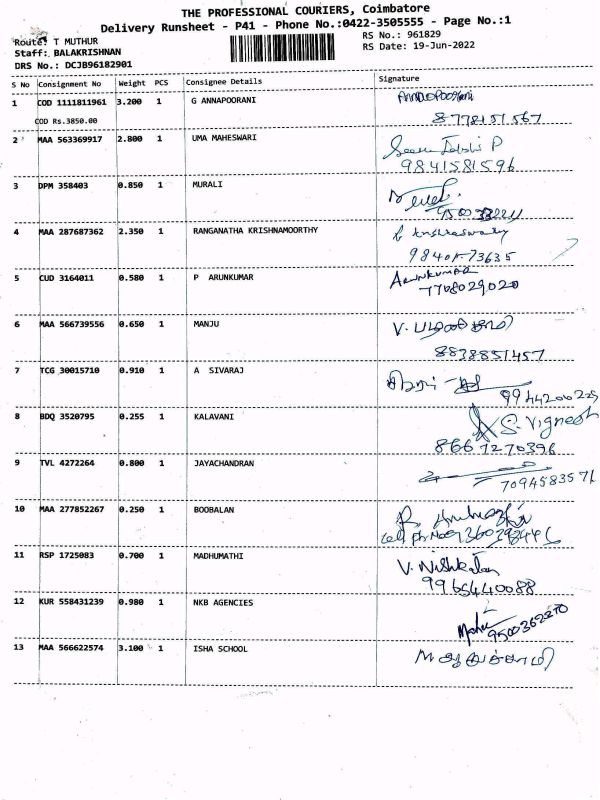 THE PROFESSIONAL COURIERS, Coimbatore
Delivery Runsheet - P41 - Phone No.:0422-3505555 - Page No.:1
Route: T MUTHUR
RS No.: 961829
Staff: BALAKRISHNAN
RS Date: 19-Jun-2022
DRS No.: DCJB96182901
S No Consignment No Weight PCS Consignee Details Signature
1 COD 1111811961 3.200 1 G ANNAPOORANI
COD Rs.3850.00 8778151567
2 MAA 563369917 2.800 1 UMA MAHESWARI
9841581596
3 DPM 358403 0.850 1 MURALI
4 MAA 287687362 2.350 1 RANGANATHA KRISHNAMOORTHY
5 CUD 3164011 0.580 1 P ARUNKUMAR Arunkumar
7708029020
6 MAA 566739556 0.650 1 MANJU V.
8838851457
7 TCG 30015710 0.910 1 A SIVARAJ
8 BDQ 3520795 0.255 1 KALAVANI S. Vignesh
8667270396
9 TVL 4272264 0.800 1 JAYACHANDRAN
7094583571
10 MAA 277852267 0.250 1 BOOBALAN
11 RSP 1725083 0.700 1 MADHUMATHI V.
9965440088
12 KUR 558431239 0.980 1 NKB AGENCIES
9500362270
13 MAA 566622574 3.100 1 ISHA SCHOOL